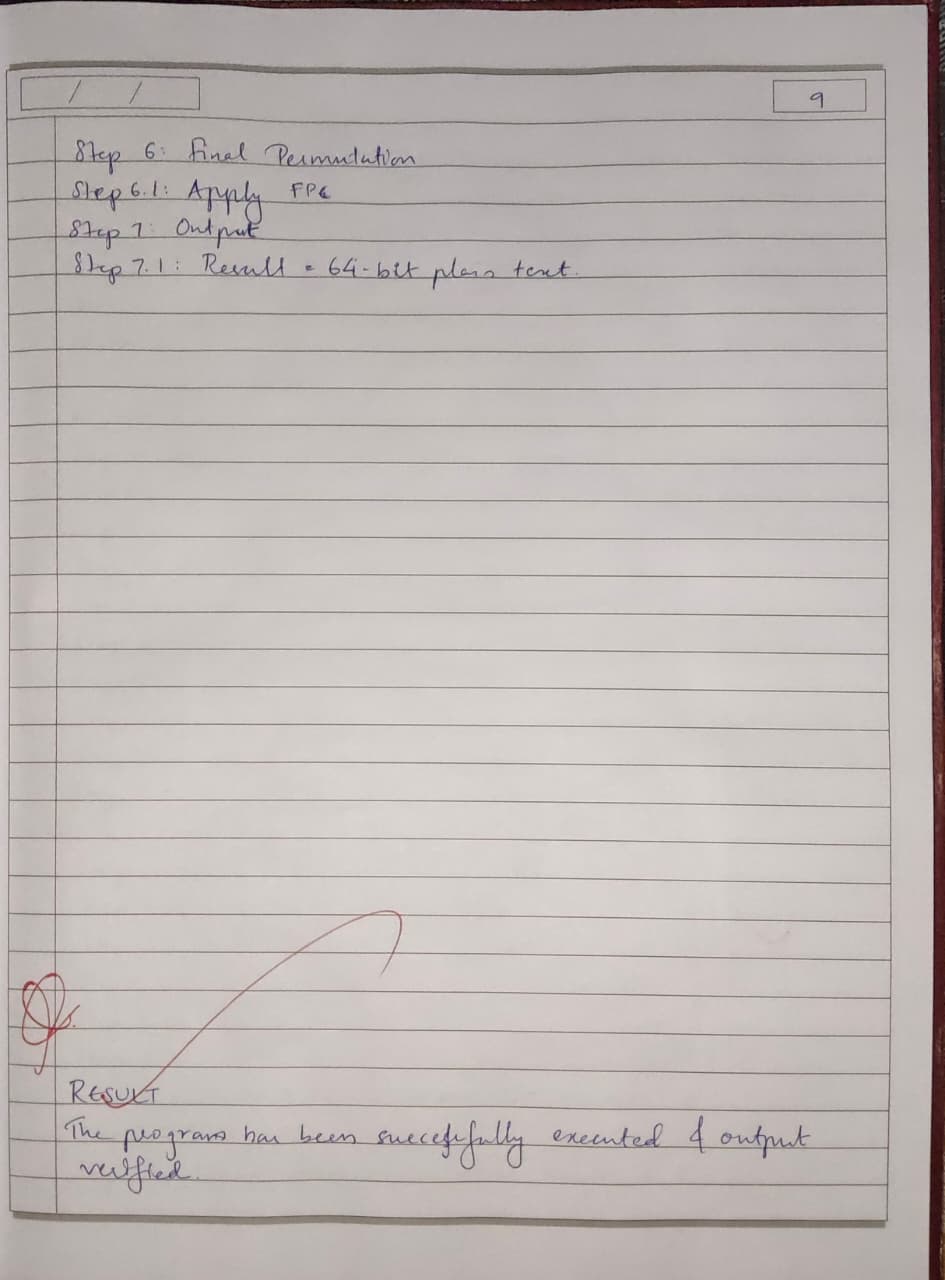 / /
9
Step 6: Final Permutation
Step 6.1: Apply FP
Step 7: Output
Step 7.1: Result = 64-bit plain text.
RESULT
The program has been succesfully executed & output
verified.